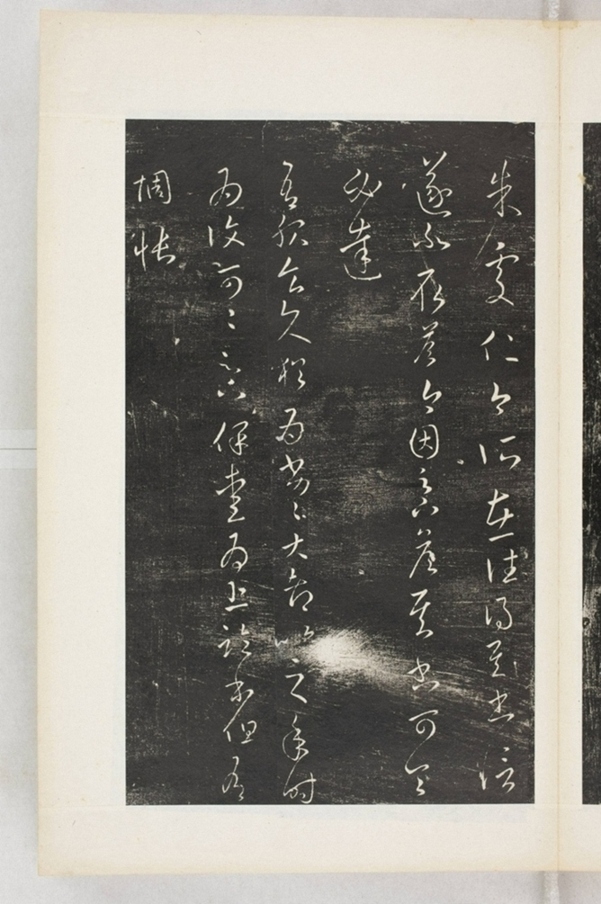 朱處仁今何在往得其書信
遂不取答今因足下答其書可令
必達
吾服食久猶為劣劣大都比之年時
為復可可足下保愛為上臨書但有
惆悵